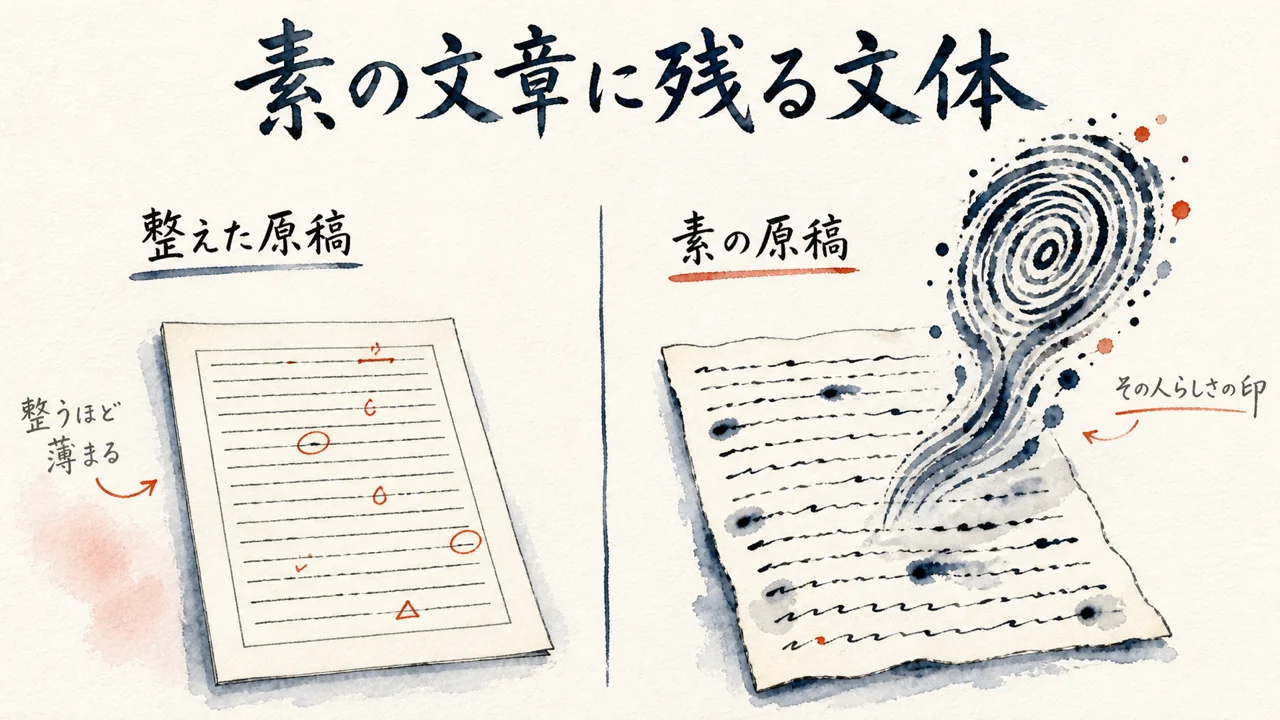 素の文章に残る文体
整えた原稿
素の原稿
整うほど
薄まる
その人らしさの印